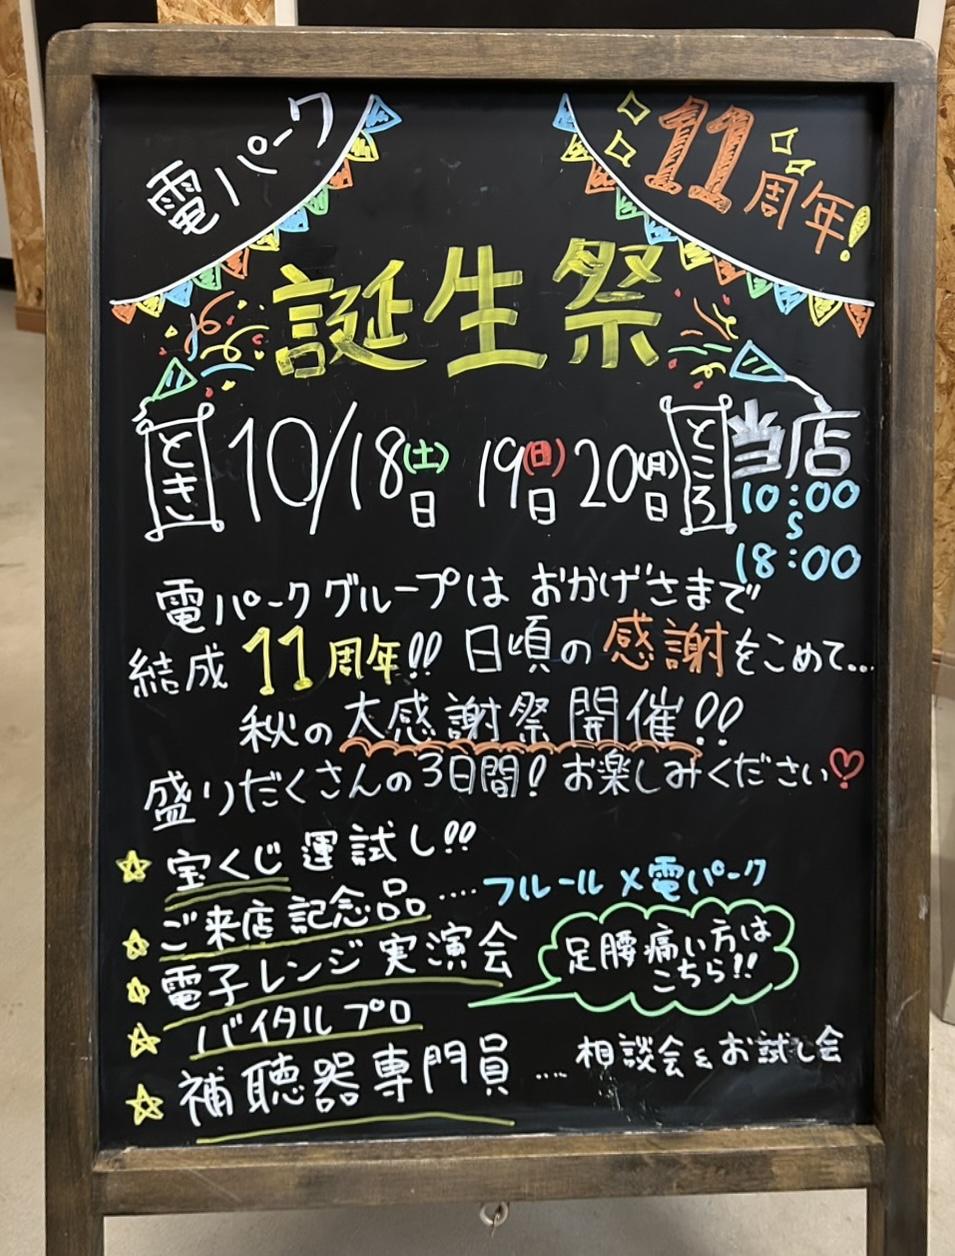 電パーク
11周年!
誕生祭
とき 10/18日(土) 19日(日) 20日(月) ところ 当店
10:00
18:00
電パークグループは おかげさまで
結成 11周年!! 日頃の感謝をこめて...
秋の大感謝祭開催!!
盛りだくさんの3日間! お楽しみください♡
☆ 宝くじ 運試し!!
☆ ご来店記念品 .... フルール×電パーク
☆ 電子レンジ実演会
☆ バイタルプロ
足腰痛い方は
こちら!!
☆ 補聴器専門員 .... 相談会&お試し会